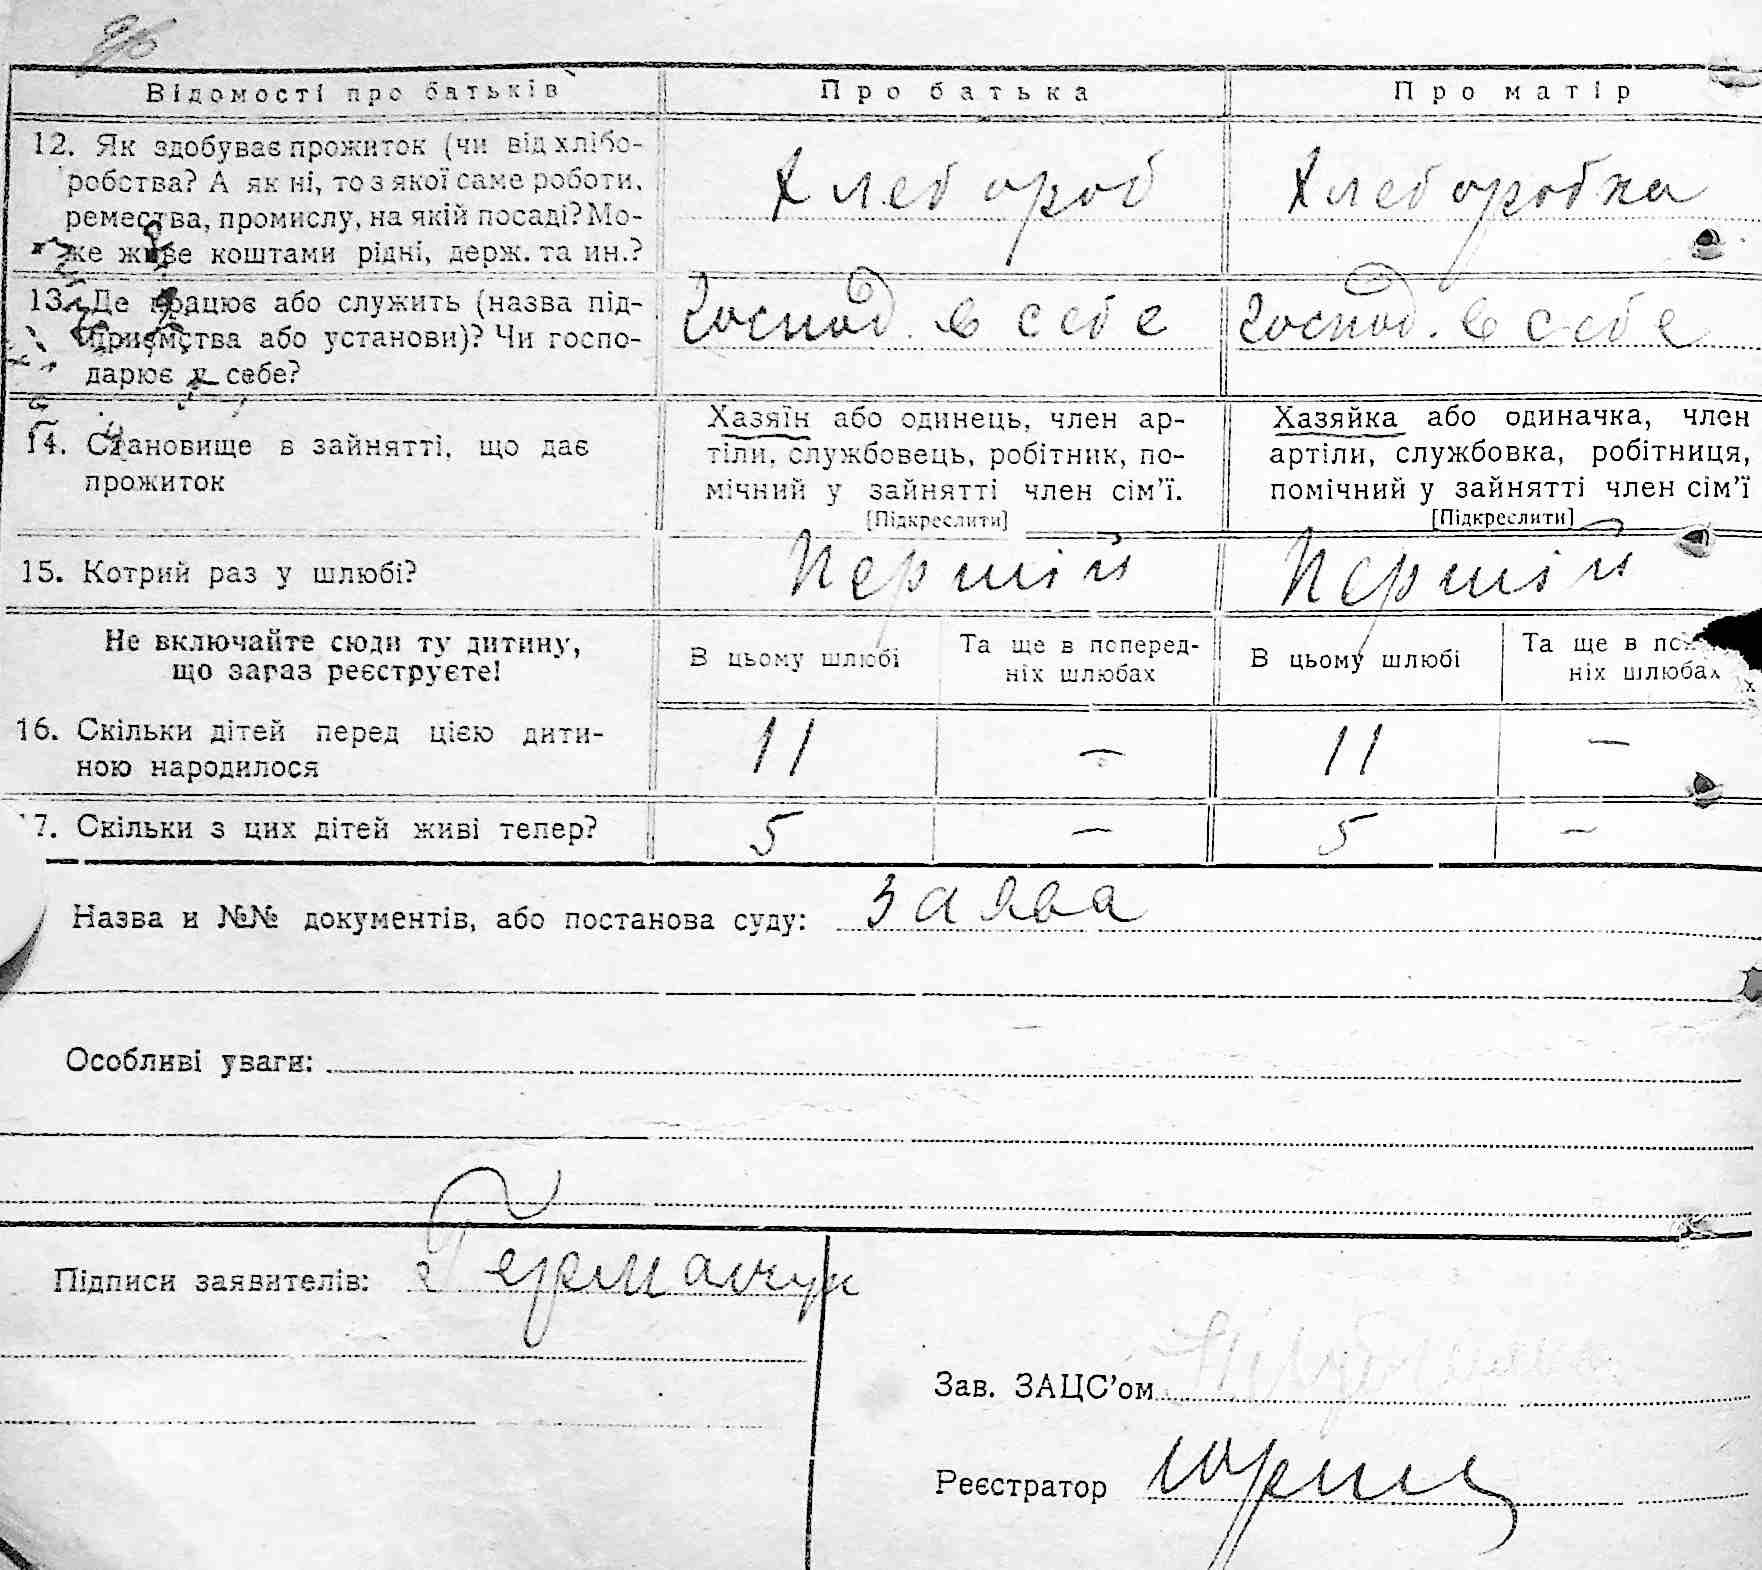 Відомості про батьків
Про батька
Про матір
12. Як здобуває прожиток (чи від хлібо-
робства? А як ні, то з якої саме роботи,
ремества, промислу, на якій посаді? Мо-
же живе коштами рідні, держ. та ин.?
Хлебороб
Хлеборобка
13. Де працює або служить (назва під-
приємства або установи)? Чи госпо-
дарює у себе?
Господ. в себе
Господ. в себе
14. Становище в зайнятті, що дає
прожиток
Хазяїн або одинець, член ар-
тіли, службовець, робітник, по-
мічний у зайнятті член сім'ї.
[Підкреслити]
Хазяйка або одиначка, член
артіли, службовка, робітниця,
помічний у зайнятті член сім'ї
[Підкреслити]
15. Котрий раз у шлюбі?
Першій
Першій
Не включайте сюди ту дитину,
що зараз реєструєте!
В цьому шлюбі
Та ще в поперед-
ніх шлюбах
В цьому шлюбі
Та ще в
ніх шлюбах
16. Скільки дітей перед цією дити-
ною народилося
11
-
11
-
17. Скільки з цих дітей живі тепер?
5
-
5
-
Назва и №№ документів, або постанова суду: заява
Особливі уваги:
Підписи заявителів: Германчук
Зав. ЗАЦС'ом
Реєстратор